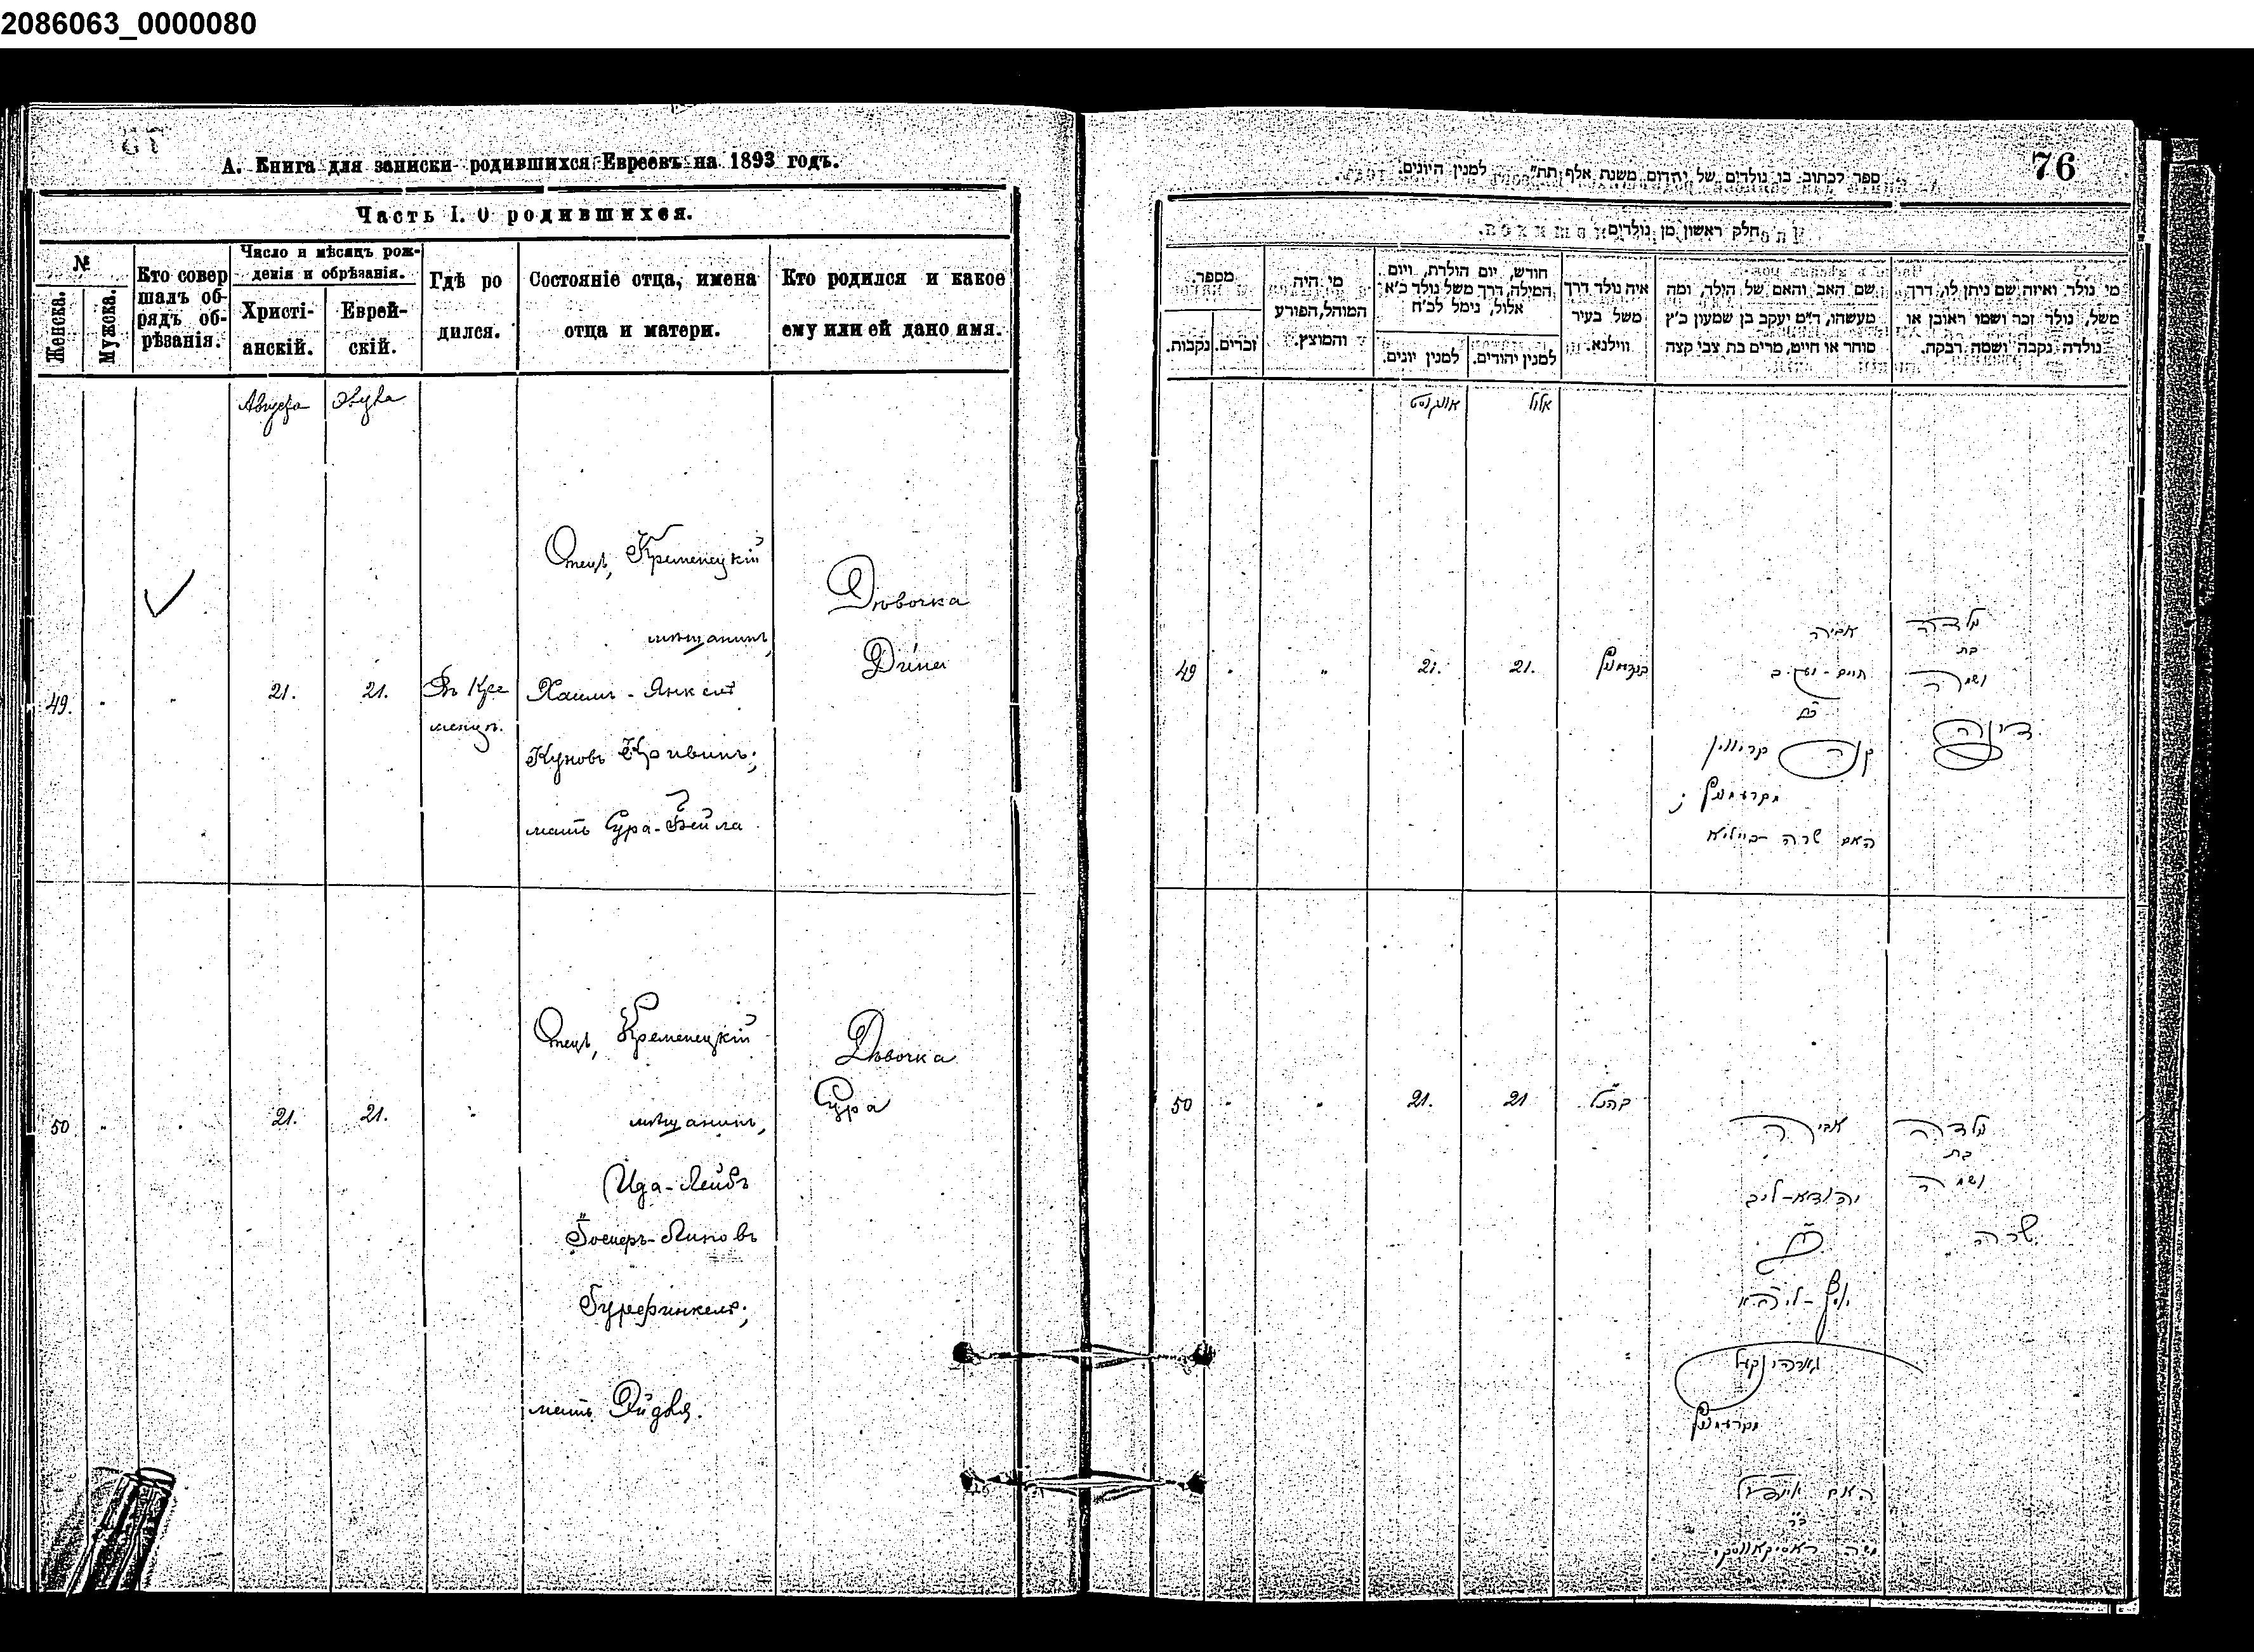 2086063_0000080
А. Книга для записки родившихся Евреевъ на 1893 годъ.
Часть I. О родившихся.
№
Женска.
Мужска.
Кто совер
шалъ об-
рядъ об-
рѣзанія.
Число и мѣсяцъ рож-
денія и обрѣзанія.
Христі-
анскій.
Еврей-
скій.
Гдѣ ро
дился.
Состояніе отца, имена
отца и матери.
Кто родился и какое
ему или ей дано имя.
Августа
Элула
Отецъ, Кременецкій
мѣщанинъ,
Хаимъ-Янкель
Куновъ Кривинъ;
мать Сура-Бейла
Дѣвочка
Дина
49. 21. 21. Въ Кре
менцѣ.
Отецъ, Кременецкій
мѣщанинъ,
Ида-Лейбъ
мать
Дѣвочка
Сура
50 21. 21.
76
ספר לכתוב בו נולדים של יהדום משנת אלף תת״ למנין היונים.
חלק ראשון מן נולדים
מספר.
נקבות.
זכרים.
מי היה
המוהל, הפורע
והמוצץ.
חודש, יום הולדת, ויום
המילה, דרך משל נולד כ״א
אלול, נימל לכ״ח
למנין יונים.
למנין יהודים.
איה נולד דרך
משל בעיר
ווילנא.
שם האב והאם של הילד, ומה
מעשהו, ד״מ יעקב בן שמעון כ״ץ
סוחר או חייט, מרים בת צבי קצה
מי נולד ואיזה שם ניתן לו, דרך
משל, נולד זכר ושמו ראובן או
נולדה נקבה ושמה רבקה.
אווגוסט
אלול
49 21. 21.
נולדה
בת
ושמה
דינה
אביה
חיים-יעקב
ב״ר
קונה קריווין
מקרעמעניץ;
האם שרה ביילא
50 21. 21 כהנ״ל
נולדה
בת
ושמה
שרה
אביה
יהודא-ליב
ב״ר
מקרעמעניץ
האם
ב״ר